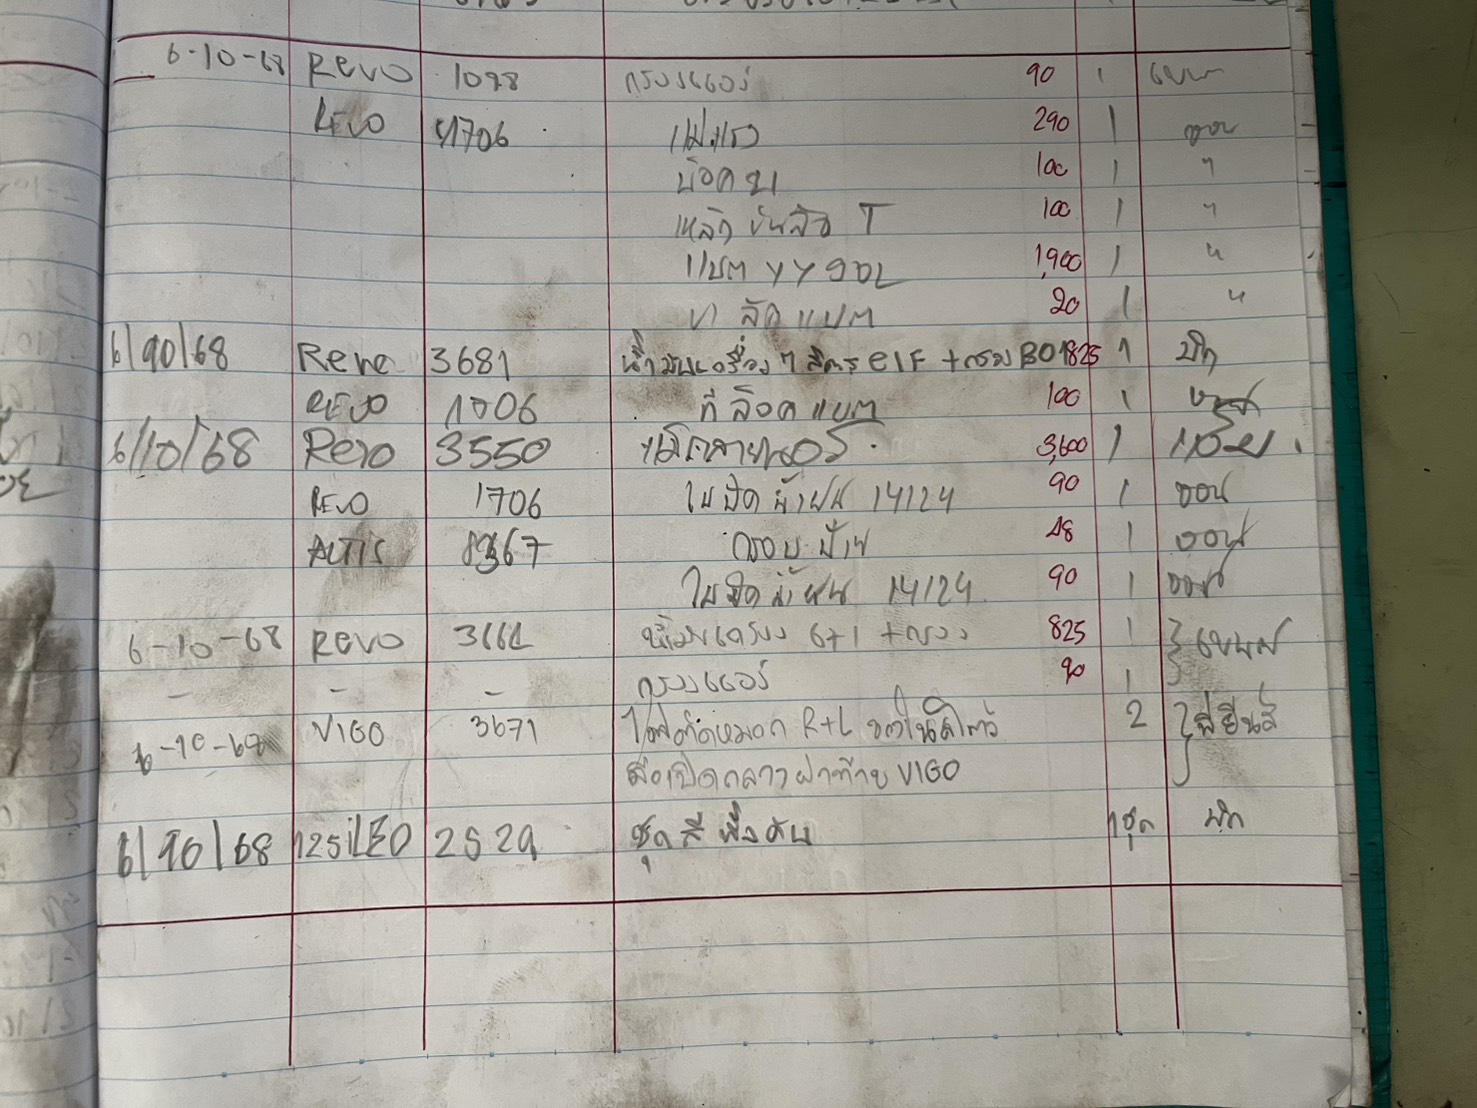 6-10-68 Revo 1098 กรองแอร์ 90 1
REVO 1706 แม่แรง 290 1 ออน
บ๊อค 100 1 "
เหล็กขันล้อ T 100 1 "
แบต YY 90L 1,900 1 "
ขารัดแบต 20 1 "
6/10/68 Revo 3681 น้ำมันเครื่อง 7 ลิตร elf + กรอง BO 1825 1 บิ๊ก
REVO 1706 ที่ล็อคแบต 100 1
6/10/68 Revo 3550 3,600 1
REVO 1706 ใบปัดน้ำฝน 14/24 90 1 ออน
ALTIS 8967 กรอบป้าย 48 1 ออน
ใบปัดน้ำฝน 14/24 90 1 ออน
6-10-68 Revo 3661 น้ำมันเครื่อง 6+1 + กรอง 825 1
- - - กรองแอร์ 90 1
6-10-68 VIGO 3671 ไฟตัดหมอก R+L 2
มือเปิดกลางฝาท้าย VIGO
6/10/68 2529 ชุดสี 1ชุด บิ๊ก